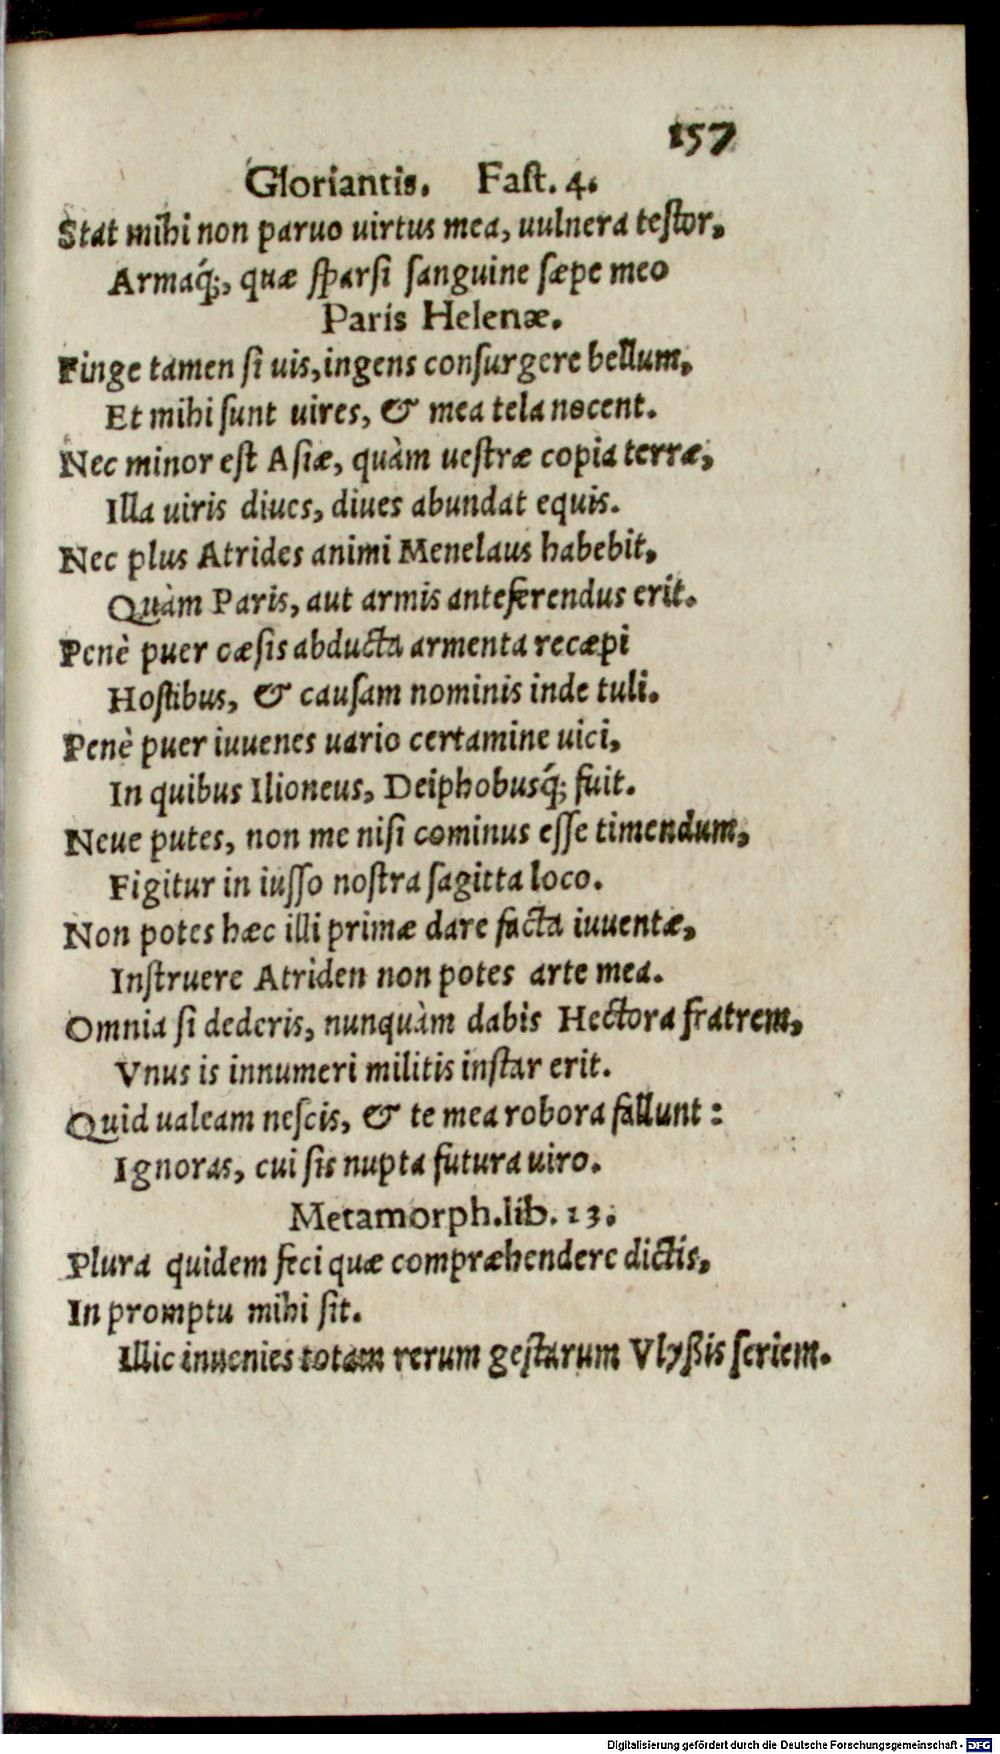 157
Gloriantis. Fast. 4.
Stat mihi non paruo uirtus mea, uulnera testor,
Armaq́;, quæ sparsi sanguine sæpe meo
Paris Helenæ.
Finge tamen si uis, ingens consurgere bellum,
Et mihi sunt uires, & mea tela nocent.
Nec minor est Asiæ, quàm uestræ copia terræ,
Illa uiris diues, diues abundat equis.
Nec plus Atrides animi Menelaus habebit,
Quàm Paris, aut armis anteferendus erit.
Penè puer cæsis abducta armenta recæpi
Hostibus, & causam nominis inde tuli.
Penè puer iuuenes uario certamine uici,
In quibus Ilioneus, Deiphobusq́; fuit.
Neue putes, non me nisi cominus esse timendum,
Figitur in iusso nostra sagitta loco.
Non potes hæc illi primæ dare facta iuuentæ,
Instruere Atriden non potes arte mea.
Omnia si dederis, nunquàm dabis Hectora fratrem,
Vnus is innumeri militis instar erit.
Quid ualeam nescis, & te mea robora fallunt:
Ignoras, cui sis nupta futura uiro.
Metamorph. lib. 13.
Plura quidem feci quæ compræhendere dictis,
In promptu mihi sit.
Illic inuenies totam rerum gestarum Vlyßis seriem.
Digitalisierung gefördert durch die Deutsche Forschungsgemeinschaft - DFG